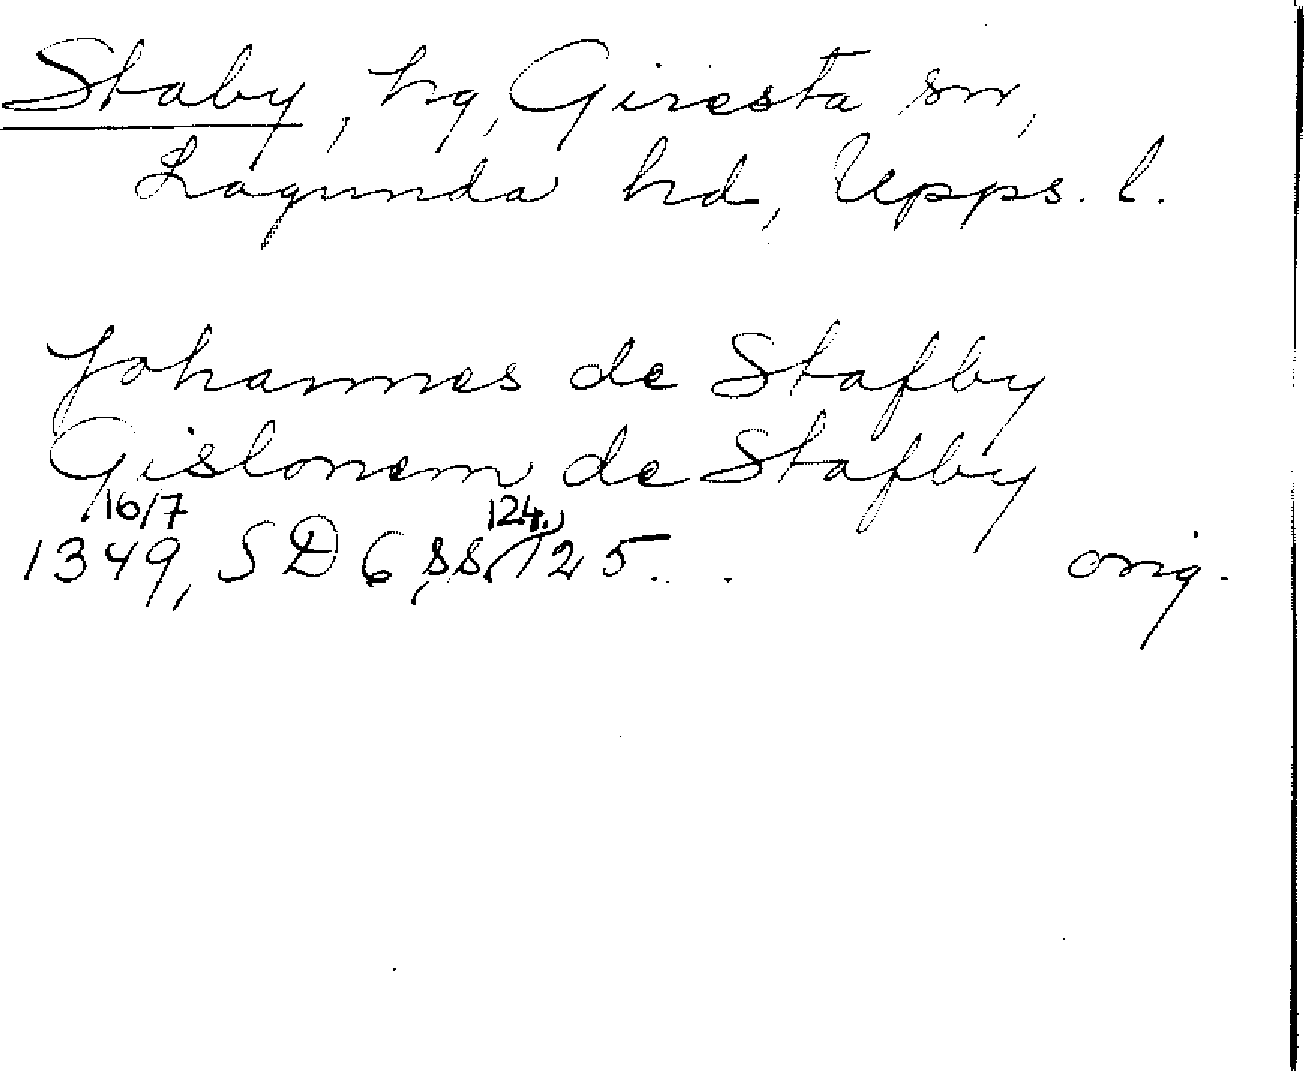 Staby, hg, Giresta sn,
Lagunda hd, Upps. l.
Johannes de Stafby
Gislonem de Stafby
16/7 124,
1349, SD 6 ss. 125. . orig.